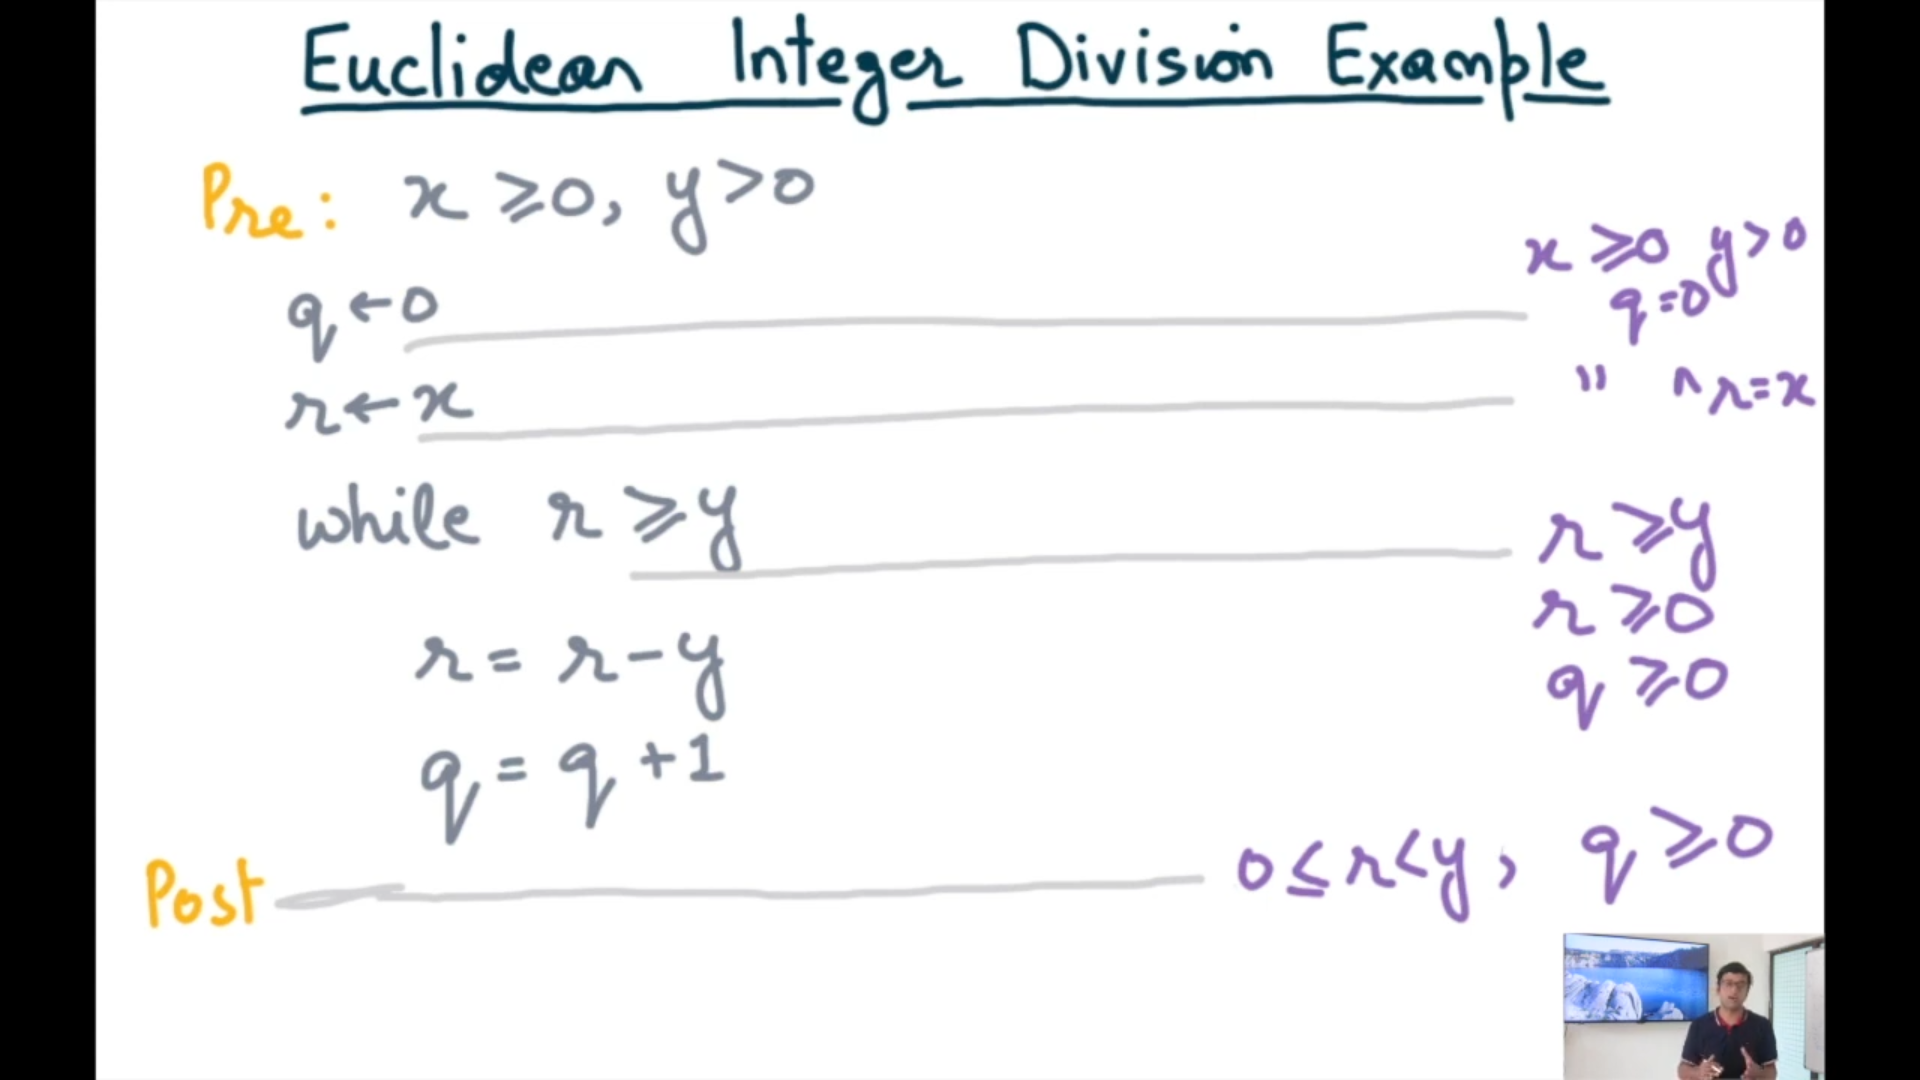 Euclidean Integer Division Example
Pre: x ⩾ 0, y > 0
x ⩾ 0 y > 0
q ← 0
q = 0
r ← x
" ^ r = x
while r ⩾ y
r ⩾ y
r ⩾ 0
r = r - y
q ⩾ 0
q = q + 1
Post
0 ≤ r < y, q ⩾ 0